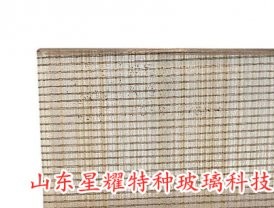 山东星耀特种玻璃科技